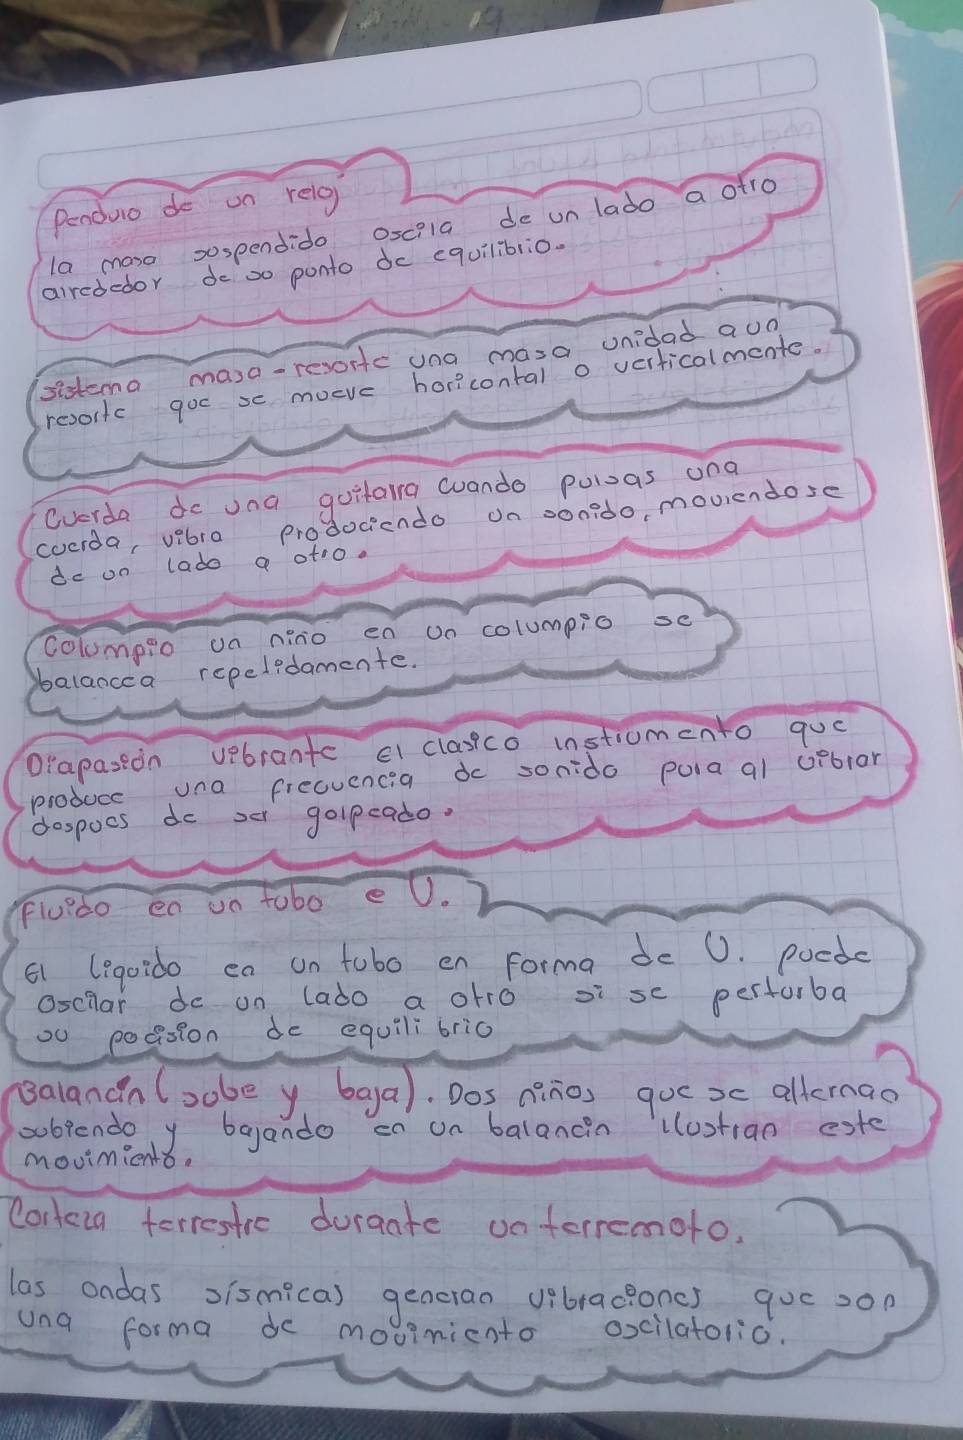 Pendulo de un reloj
la masa suspendido oscila de un lado a otro
alrededor de su punto de equilibrio.
sistema masa-resorte una masa unidad aun
resorte que se mueve horicontal o verticalmente.
Cuerda de una guitarra cuando pulsas una
cuerda, vibra produciendo un sonido, moviendose
de un lado a otro.
Columpio un niño en un columpio se
balancea repetidamente.
Diapasión vibrante El clasico instrumento que
produce una frecuencia de sonido pura al vibrar
despues de ser golpeado.
Fluido en un tubo e U.
El liquido en un tubo en forma de U. puede
oscilar de un lado a otro si se perturba
su posision de equilibrio
Balancín (sube y baja). Dos niños que se alternan
subiendo y bajando en un balancin ilustran este
movimiento.
Corteza terrestre durante un terremoto.
las ondas sísmicas generan vibraciones que son
una forma de movimiento oscilatorio.